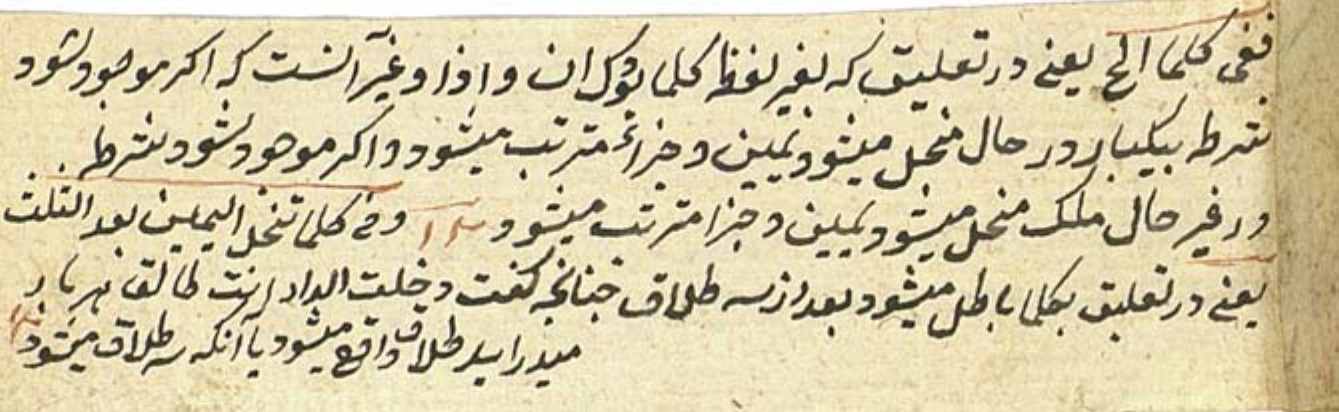 ففی کلما الخ یعنی در تعلیق که بغیر لفظ کلما بود که ان و اذا و غیر آنست که اکر موجود شود
شرط بیکبار در حال منحل میشود یمین و جزاء مترتب میشود و اکر موجود شود شرط
در غیر حال ملک منحل میشود یمین و جزا مترتب میشود و فی کلما تنحل الیمین بعد الثلث
یعنی در تعلیق بکلما باطل میشود بعد از سه طلاق چنانچه کفت دخلت الدار انت طالق هر بار
میدراید طلاق واقع میشود یا آنکه سه طلاق میشود